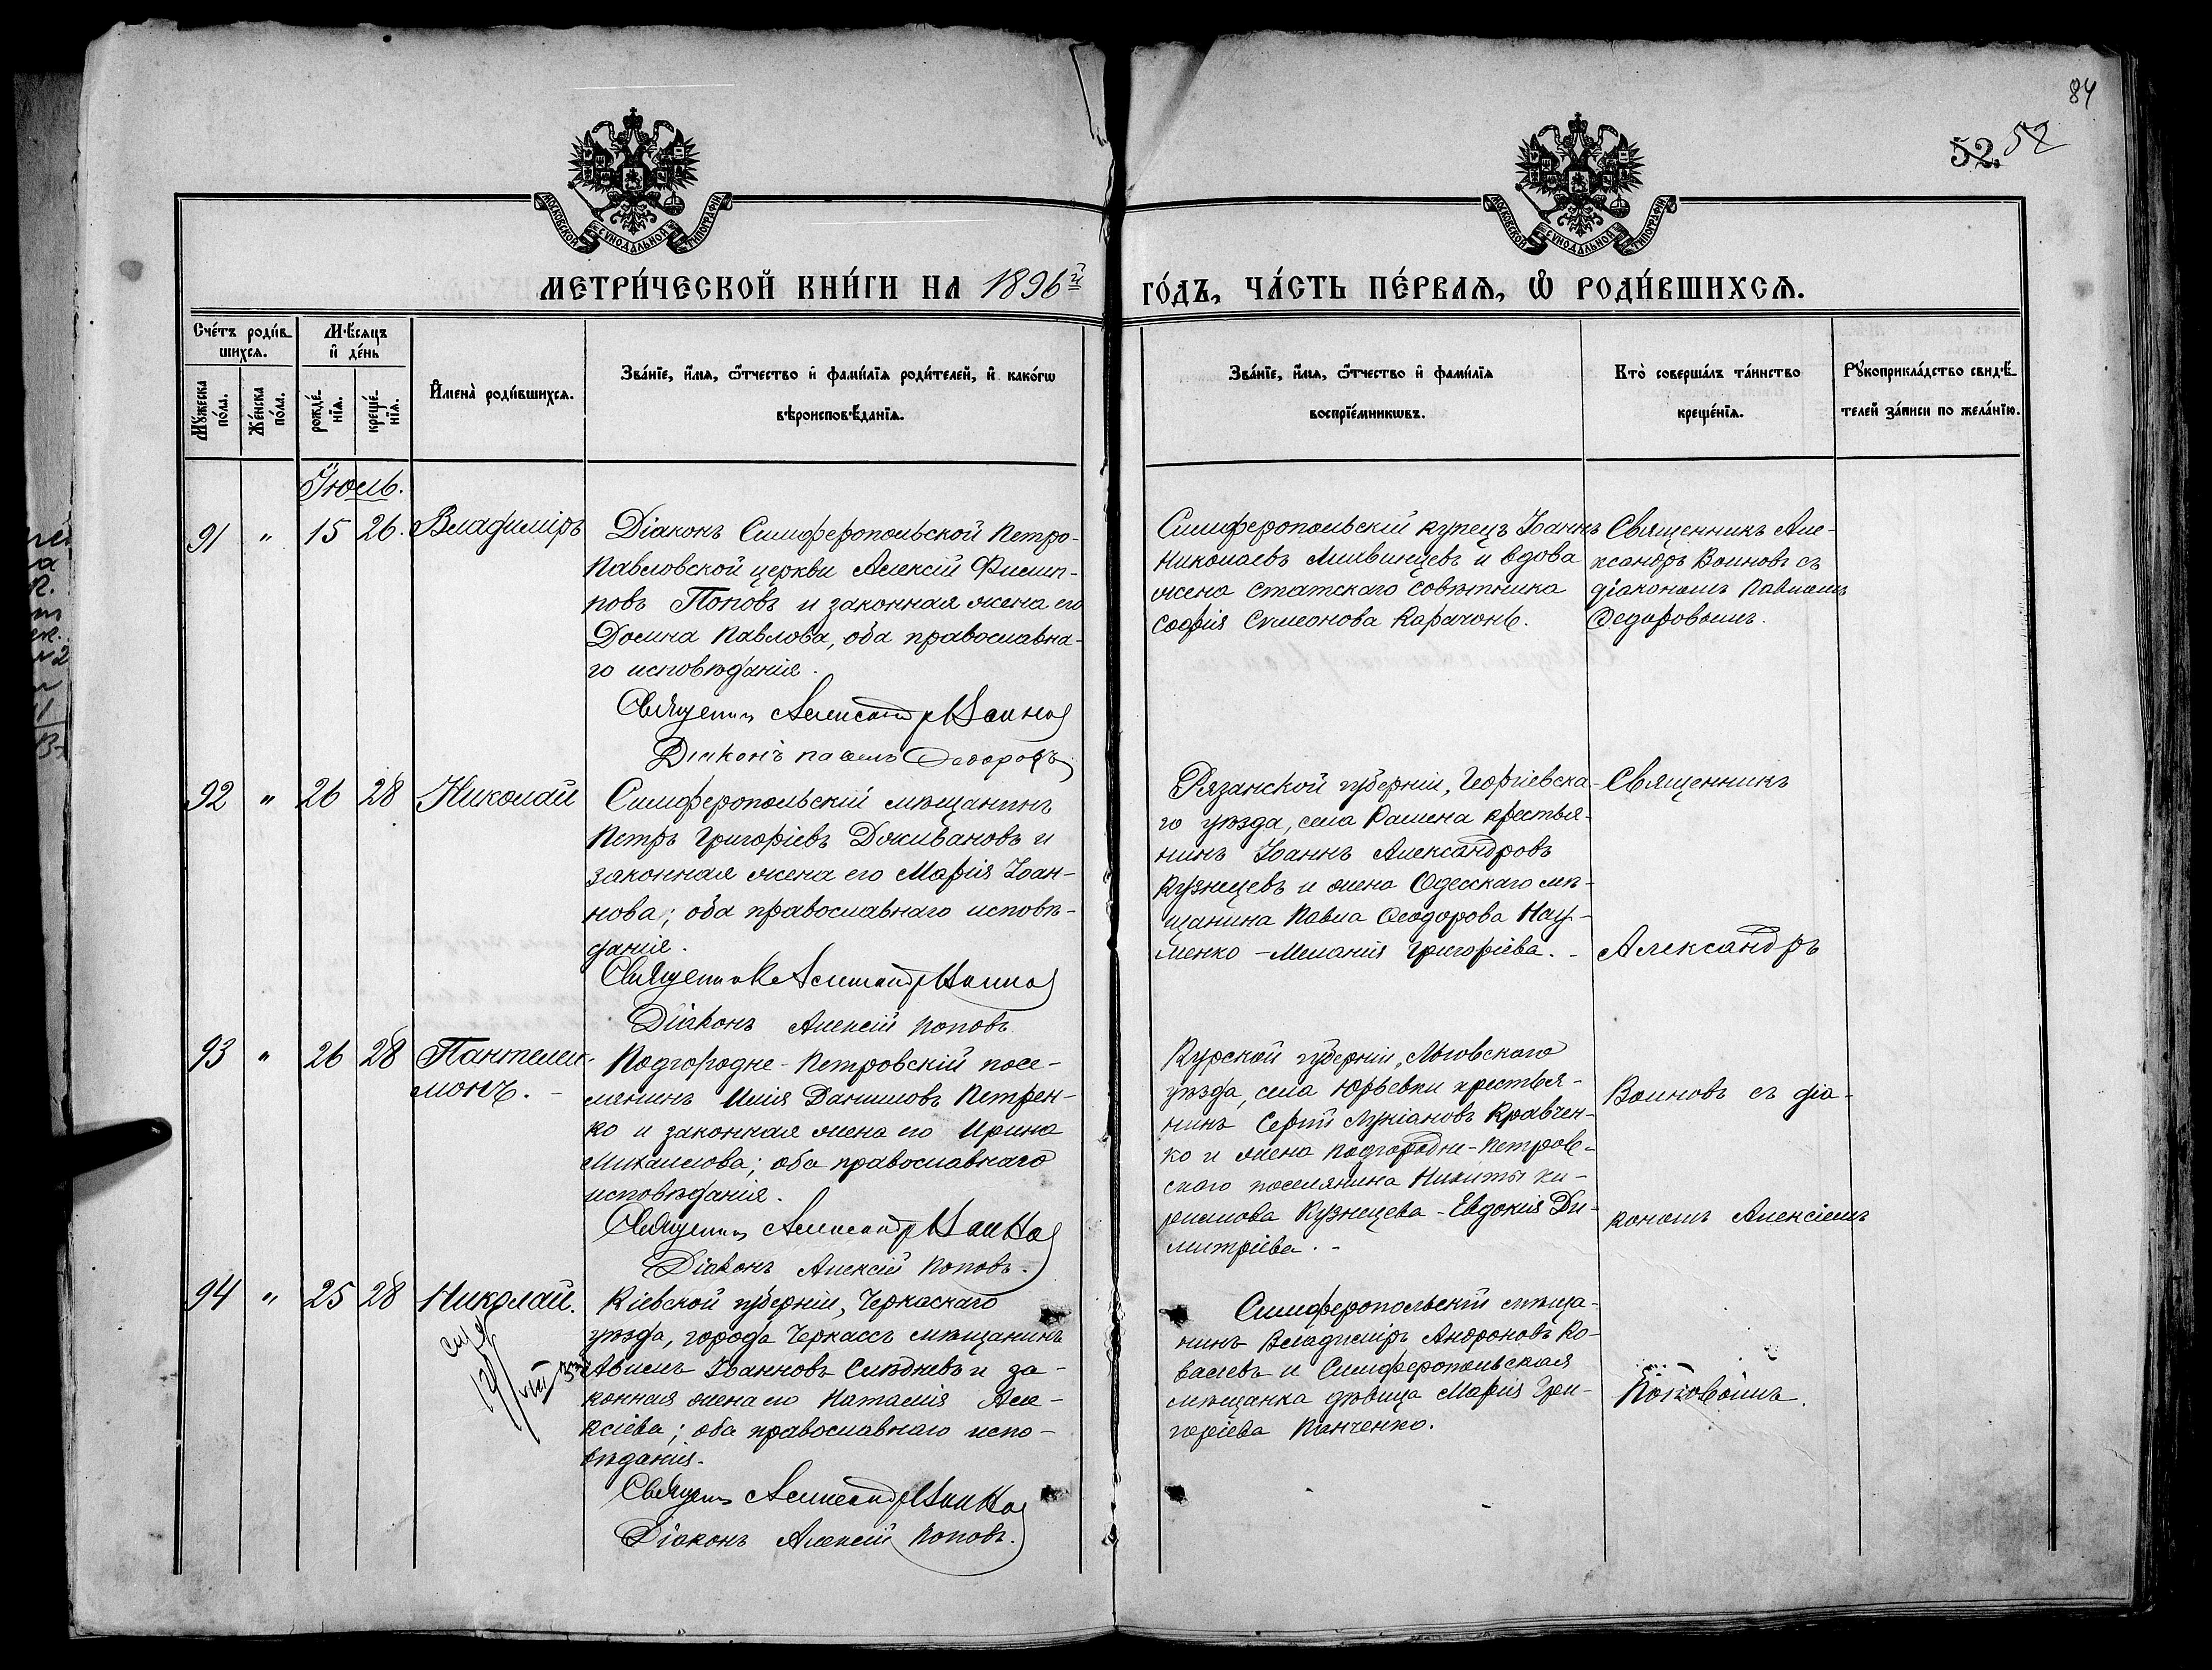 84
52. 52
МОСКОВСКОЙ СУНОДАЛЬНОЙ ТИПОГРАФІИ
МОСКОВСКОЙ СУНОДАЛЬНОЙ ТИПОГРАФІИ
МЕТРИ́ЧЕСКОЙ КНИ́ГИ НА 1896й ГО́ДЪ, ЧА́СТЬ ПЕ́РВАѦ, Ѡ РОДИ́ВШИХСѦ.
Сче́тъ роди́в-
шихсѧ.
Мꙋ́жеска по́ла.
Же́нска по́ла.
Мѣ́сѧцъ
и де́нь
рожде́-
нїѧ.
креще́-
нїѧ.
Имена̀ роди́вшихсѧ.
Зва́нїе, и́мѧ, ѻ҆́тчество и фами́лїѧ роди́телей, и како́гѡ
вѣроисповѣ́данїѧ.
Зва́нїе, и́мѧ, ѻ҆́тчество и фами́лїѧ
воспрїе́мникѡвъ.
Кто̀ соверша́лъ та́инство
креще́нїѧ.
Рꙋкоприкла́дство свидѣ́-
телей за́писи по жела́нїю.
Іюль.
91 " 15 26. Владиміръ
Діаконъ Симферопольской Петро-
Павловской церкви Алексій Филип-
повъ Поповъ и законная жена его
Домна Павлова, оба православна-
го исповѣданія.
Священникъ Александръ Воиновъ
Діаконъ Павелъ Федоровъ
Симферопольскій купецъ Іоаннъ
Николаевъ и вдова
жена статскаго совѣтника
Софія Симеонова
Священникъ Але-
ксандръ Воиновъ съ
діакономъ Павломъ
Федоровымъ.
92 " 26 28 Николай
Симферопольскій мѣщанинъ
Петръ Григоріевъ Доживановъ и
законная жена его Марія Іоан-
нова; оба православнаго исповѣ-
данія.
Священникъ Александръ Воиновъ
Діаконъ Алексій Поповъ
Рязанской губерніи, Георгіевска-
го уѣзда, села крестья-
нинъ Іоаннъ Александровъ
Кузнецевъ и жена Одесскаго мѣ-
щанина Павла Ѳеодорова Нау-
менко - Меланія Григоріева. -
Священникъ
Александръ
93 " 26 28 Пантелей-
монъ. -
Подгородне-Петровскій посе-
лянинъ Илія Даниловъ Петрен-
ко и законная жена его Ирина
Михаилова; оба православнаго
исповѣданія.
Священникъ Александръ Воиновъ
Діаконъ Алексій Поповъ.
Курской губерніи, Льговскаго
уѣзда, села Юрьевки крестья-
нинъ Сергій Лукіановъ Кравчен-
ко и жена Подгородне-Петров-
скаго поселянина Никиты Ки-
риллова Кузнецева - Евдокія Ди-
митріева. -
Воиновъ съ діа-
кономъ Алексіемъ
94 " 25 28 Николай.
Кіевской губерніи, Черкаскаго
уѣзда, города Черкассъ мѣщанинъ
Іоанновъ и за-
конная жена его Наталія Але-
ксіева; оба православнаго испо-
вѣданія.
Священникъ Александръ Воиновъ
Діаконъ Алексій Поповъ.
Симферопольскій мѣща-
нинъ Владиміръ Андроновъ Ко-
валевъ и Симферопольская
мѣщанка дѣвица Марія Гри-
горіева Панченко.
Поповымъ.